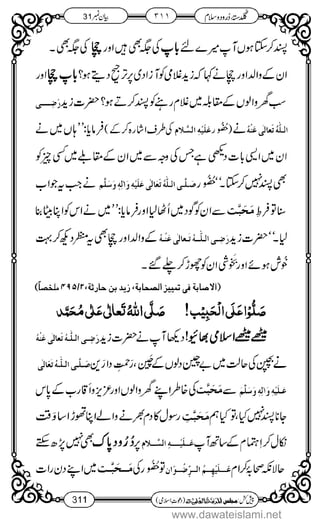 بیان نمبر 31
۳۱۱
گلدستۂ درود و سلام
پسند کرسکتا ہوں آپ میرے لئے باپ کی جگہ بھی ہیں اور چچا کی جگہ بھی ۔
ان کے والد اور چچا نے کہا کہ زید غلامی کو آزادی پر ترجیح دیتے ہو ؟ باپ چچا اور
سب گھر والوں کے مقابلہ میں غلام رہنے کو پسند کرتے ہو ؟ حضرت زید رَضِیَ
اللّٰہُ تَعَالٰی عَنْہُ نے ( حُضُور عَلَیْہِ السَّلَام کی طرف اشارہ کرکے ) فرمایا : ’’ ہاں میں نے
ان میں ایسی بات دیکھی ہے جس کی وجہ سے ان کے مقابلے میں کسی چیز کو
بھی پسند نہیں کرسکتا ۔ ‘‘ حُضُور صَلَّی اللّٰہُ تَعَالٰی عَلَیْہِ وَاٰلِہٖ وَسَلَّم نے جب یہ جواب
سنا تو فرطِ مَحَبَّت سے ان کو گود میں اُٹھالیا اور فرمایا : ’’ میں نے اس کو اپنا بیٹا بنا
لیا ۔ ‘‘ حضرت زید رَضِیَ اللّٰہُ تَعَالٰی عَنْہُ کے والد اور چچا بھی یہ منظر دیکھ کر بہت
خُوش ہوئے اور خُوشی خُوشی ان کو چھوڑ کر چلے گئے ۔
(الاصابة فی تمییز الصحابة، زید بن حارثة، ۲/۴۹۵ ملخصاً)
صَلُّوْا عَلَی الْحَبِیْب! صَلَّی اللّٰہُ تَعَالٰی عَلٰی مُحَمَّد
میٹھے میٹھے اسلامی بھائیو ! دیکھا آپ نے حضرت زید رَضِیَ اللّٰہُ تَعَالٰی عَنْہُ
نے بچپن کی حالت میں بے چین دلوں کے چین ، رحمتِ دارین صَلَّی اللّٰہُ تَعَالٰی
عَلَیْہِ وَاٰلِہٖ وَسَلَّم سے مَحَبَّت کی خاطر اپنے گھر والوں اور عزیز و اَقارب کے پاس
جانا پسند نہیں کیا ، تو کیا ہم مَحَبَّتِ رسول کا دم بھرنے والے اپنا تھوڑا سا وَقت
نکال کر اہتمام کے ساتھ آپ عَلَیْہِ السَّلَام پر دُرُودِ پاک بھی نہیں پڑھ سکتے
حالانکہ صحابۂ کرام عَلَیْہِمُ الرِّضْوَان تو حُضُور کی مَحَبَّت میں اپنے دن رات
311
پیش کش: مجلس المدینۃ العلمیۃ (دعوتِ اسلامی)
www.dawateislami.net